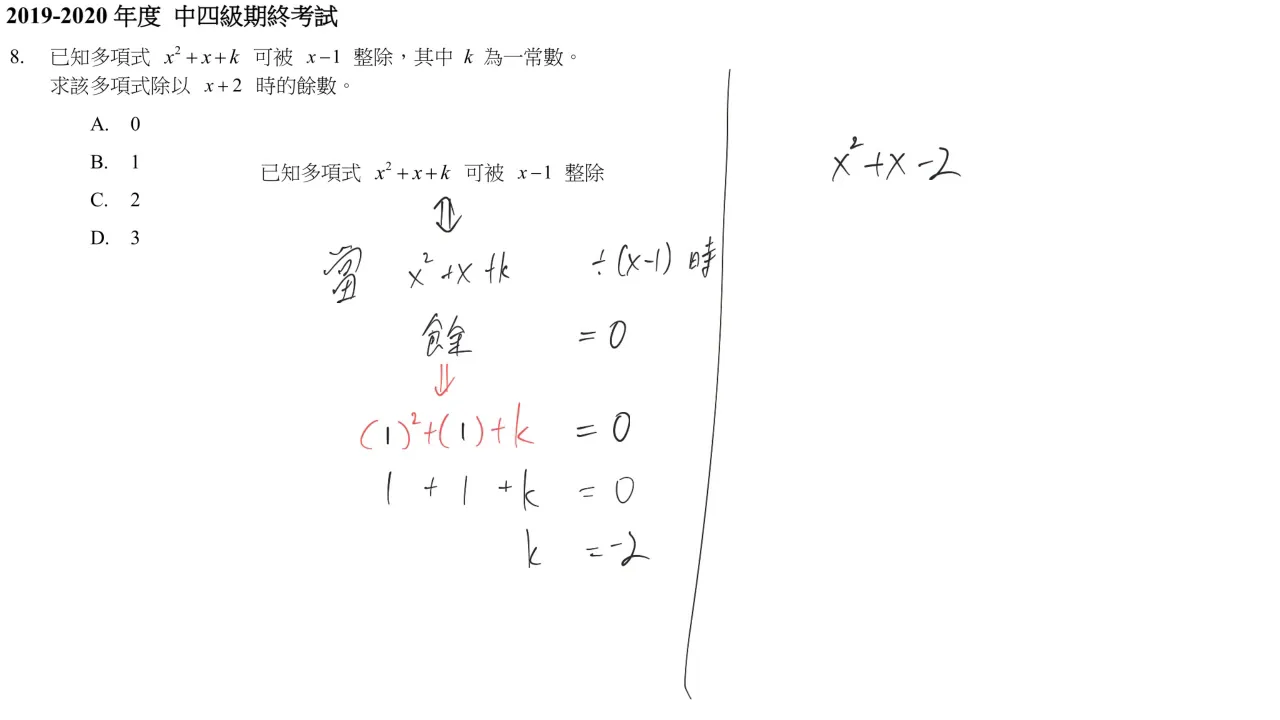 2019-2020 年度 中四級期終考試
8. 已知多項式 x²+x+k 可被 x−1 整除，其中 k 為一常數。
求該多項式除以 x+2 時的餘數。
A. 0
B. 1
C. 2
D. 3
已知多項式 x²+x+k 可被 x−1 整除
⇕
當 x²+x+k ÷(x-1) 時
餘 = 0
⇓
(1)²+(1)+k = 0
1 + 1 + k = 0
k = -2
x²+x-2